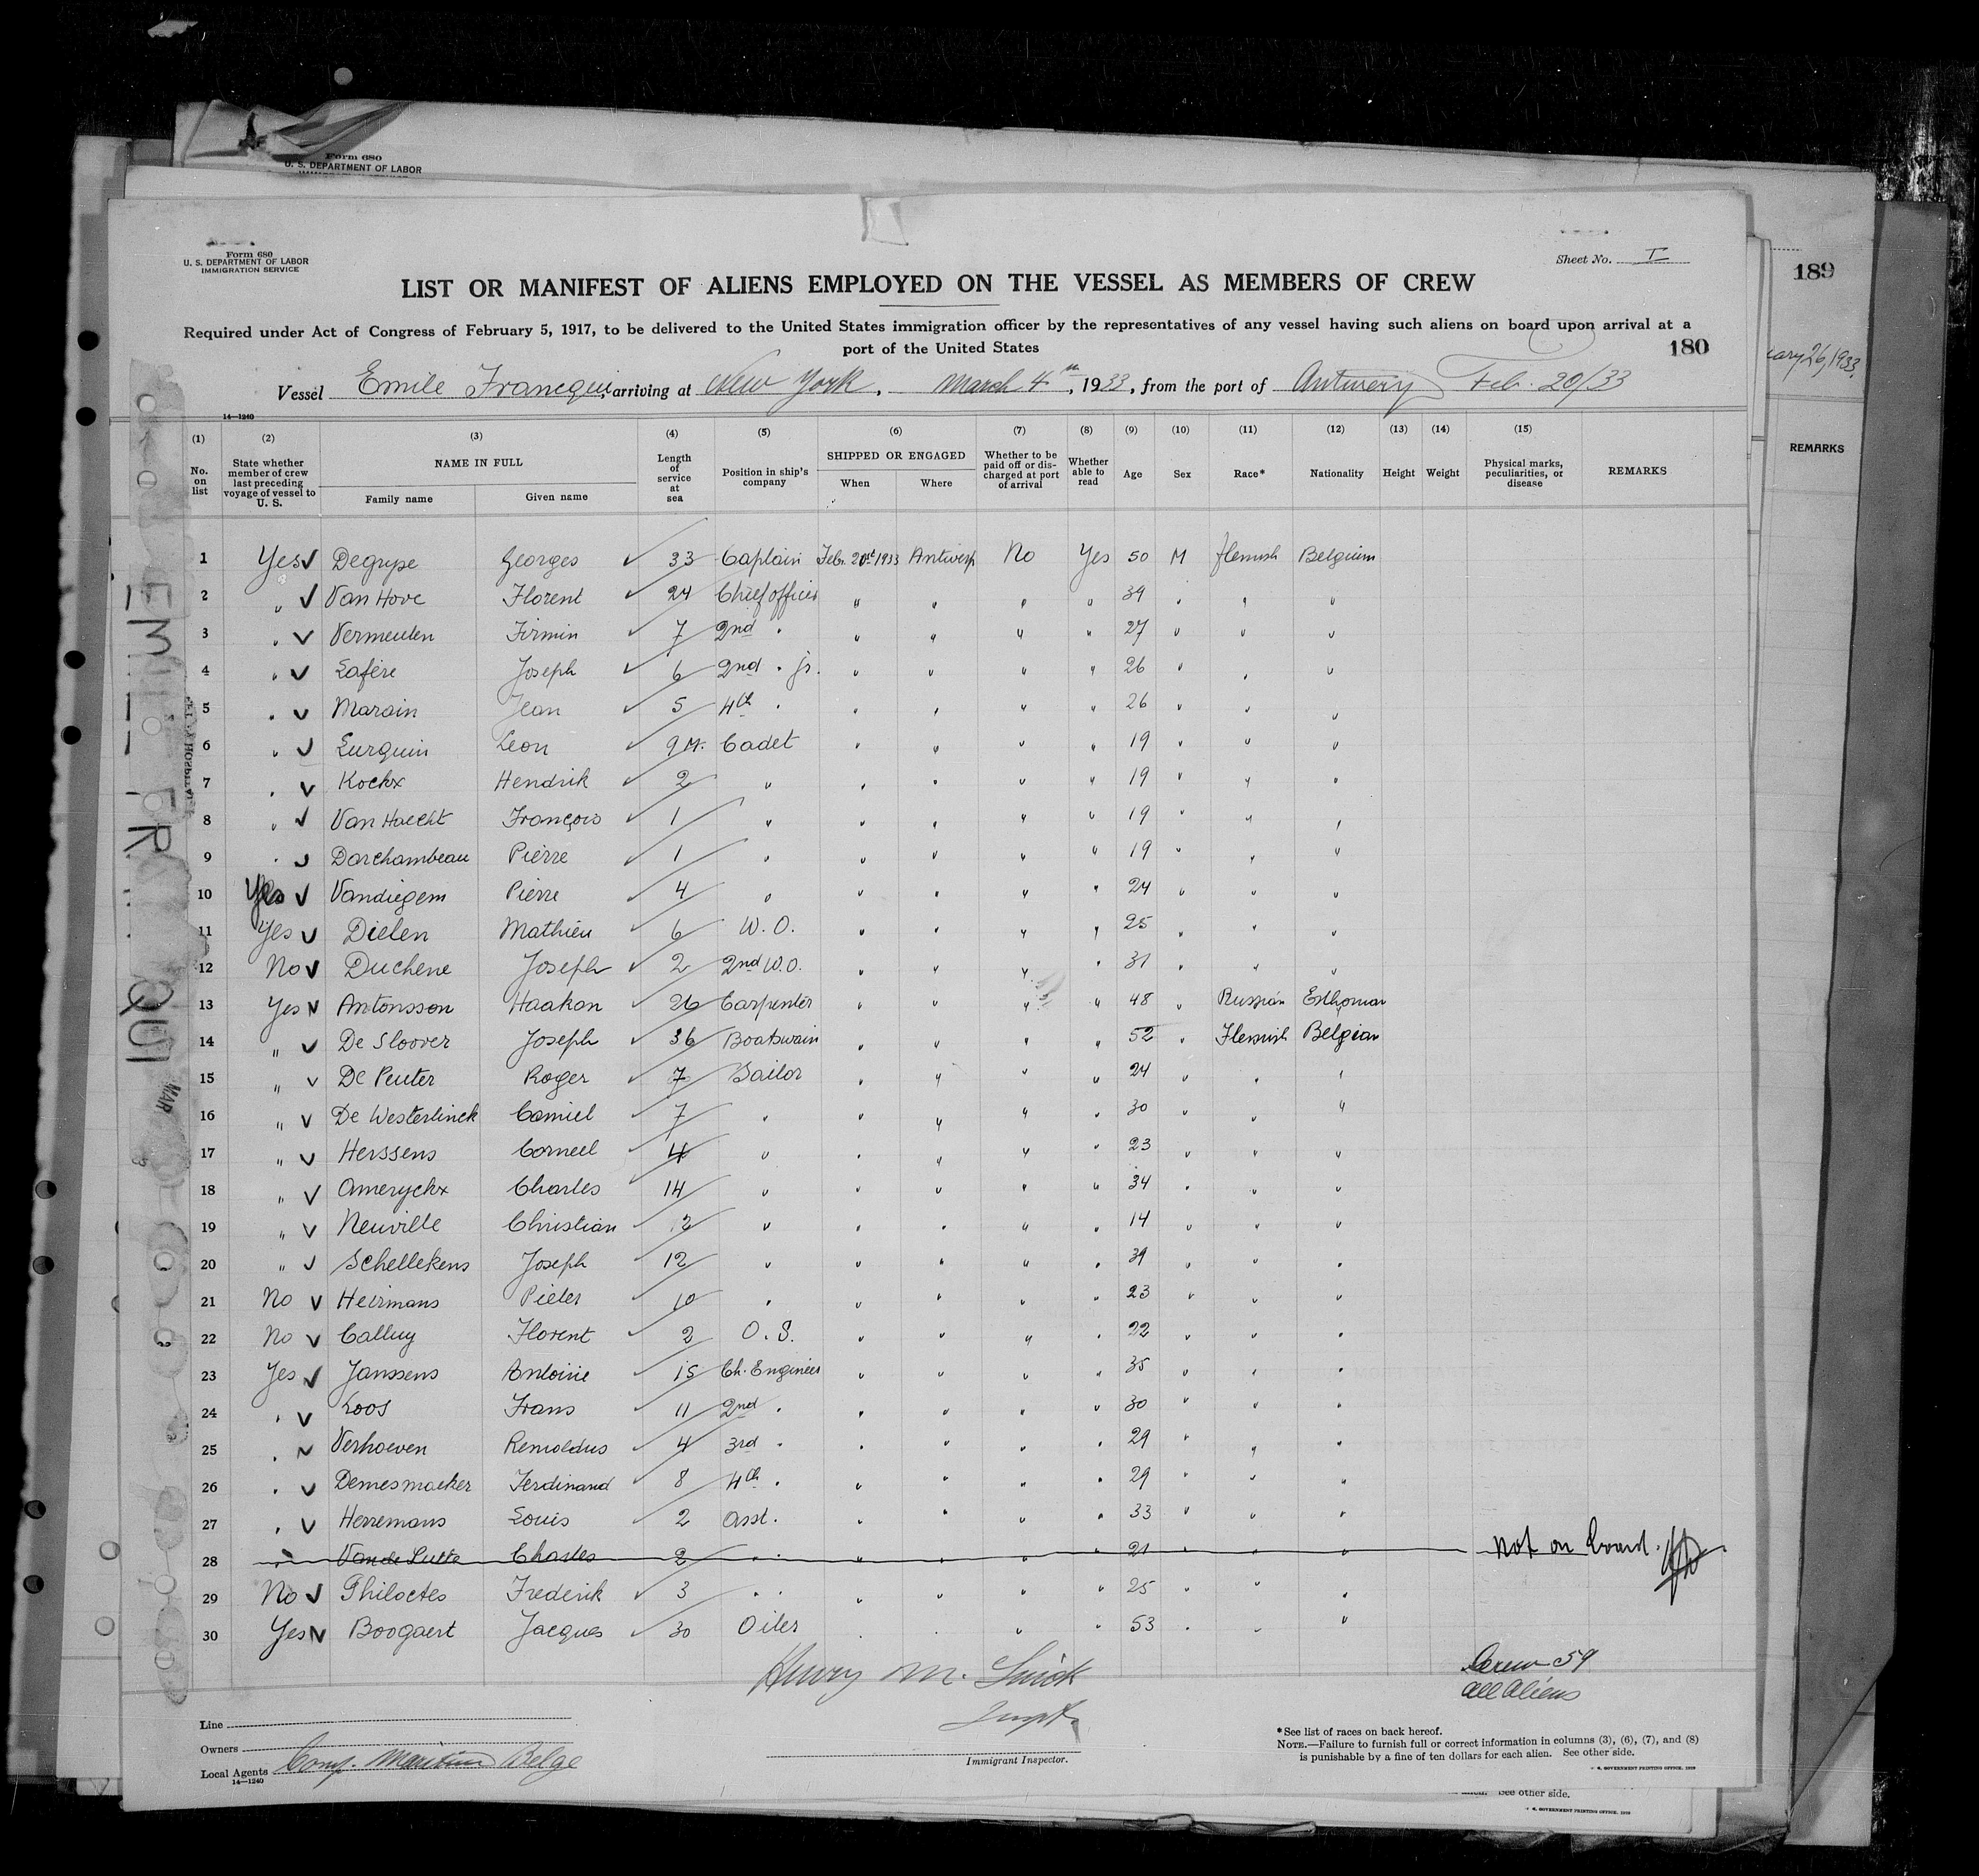 Form 680
U. S. DEPARTMENT OF LABOR
189
Form 680
U. S. DEPARTMENT OF LABOR
IMMIGRATION SERVICE
Sheet No. I
LIST OR MANIFEST OF ALIENS EMPLOYED ON THE VESSEL AS MEMBERS OF CREW
Required under Act of Congress of February 5, 1917, to be delivered to the United States immigration officer by the representatives of any vessel having such aliens on board upon arrival at a
port of the United States
180
Vessel Emile Francqui, arriving at New York, March 4th, 1933, from the port of Antwerp Feb. 20/33
14—1240
(1) (2) (3) (4) (5) (6) (7) (8) (9) (10) (11) (12) (13) (14) (15)
No. on list State whether member of crew last preceding voyage of vessel to U. S. NAME IN FULL Family name Given name Length of service at sea Position in ship's company SHIPPED OR ENGAGED When Where Whether to be paid off or discharged at port of arrival Whether able to read Age Sex Race* Nationality Height Weight Physical marks, peculiarities, or disease REMARKS
REMARKS
1 Yes Degrype Georges 33 Captain Feb. 20st 1933 Antwerp No Yes 50 M Flemish Belgium
2 " Van Hove Florent 24 Chief officer " " " " 39 " " "
3 " Vermeulen Firmin 7 2nd " " " " " 27 " " "
4 " Lafère Joseph 6 2nd " jr. " " " " 26 " " "
5 " Marain Jean 5 4th " " " " " 26 " " "
6 " Lurquin Leon 9 M. Cadet " " " " 19 " " "
7 " Kockx Hendrik 2 " " " " " 19 " " "
8 " Van Haecht François 1 " " " " " 19 " " "
9 " Darchambeau Pierre 1 " " " " " 19 " " "
10 Yes Vandiegem Pierre 4 " " " " " 24 " " "
11 Yes Dielen Mathieu 6 W. O. " " " " 25 " " "
12 No Duchene Joseph 2 2nd W.O. " " " " 31 " " "
13 Yes Antonsson Haakon 26 Carpenter " " " " 48 " Russian Esthonian
14 " De Sloover Joseph 36 Boatswain " " " " 52 " Flemish Belgian
15 " De Peuter Roger 7 Sailor " " " " 24 " " "
16 " De Westerlinck Camiel 7 " " " " " 30 " " "
17 " Herssens Corneel 4 " " " " " 23 " " "
18 " Ameryckx Charles 14 " " " " " 34 " " "
19 " Neuville Christian 12 " " " " " 14 " " "
20 " Schellekens Joseph 12 " " " " " 39 " " "
21 No Heirmans Pieter 10 " " " " " 23 " " "
22 No Calluy Florent 2 O. S. " " " " 22 " " "
23 Yes Janssens Antoine 15 Ch. Engineer " " " " 35 " " "
24 " Loos Frans 11 2nd " " " " " 30 " " "
25 " Verhoeven Remoldus 4 3rd " " " " " 29 " " "
26 " Demesmaeker Ferdinand 8 4th " " " " " 29 " " "
27 " Herremans Louis 2 Asst. " " " " 33 " " "
28 " Van de Putte Charles 2 " " " " " " 21 " " " Not on board.
29 No Philoctes Frederik 3 " " " " " " 25 " " "
30 Yes Boogaert Jacques 30 Oiler " " " " 53 " " "
Henry M.
Inspt.
Crew 59
All Aliens
Line
Owners
Local Agents Comp. Maritime Belge
14—1240
Immigrant Inspector.
*See list of races on back hereof.
NOTE.—Failure to furnish full or correct information in columns (3), (6), (7), and (8)
is punishable by a fine of ten dollars for each alien. See other side.
See other side.